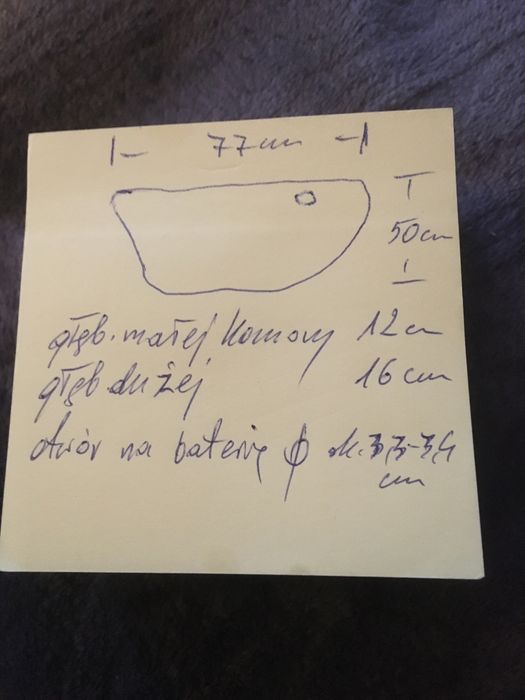 77cm
50cm
głęb. małej komory 12cm
głęb. dużej 16cm
otwór na baterię ϕ ok. 3,3-3,4
cm